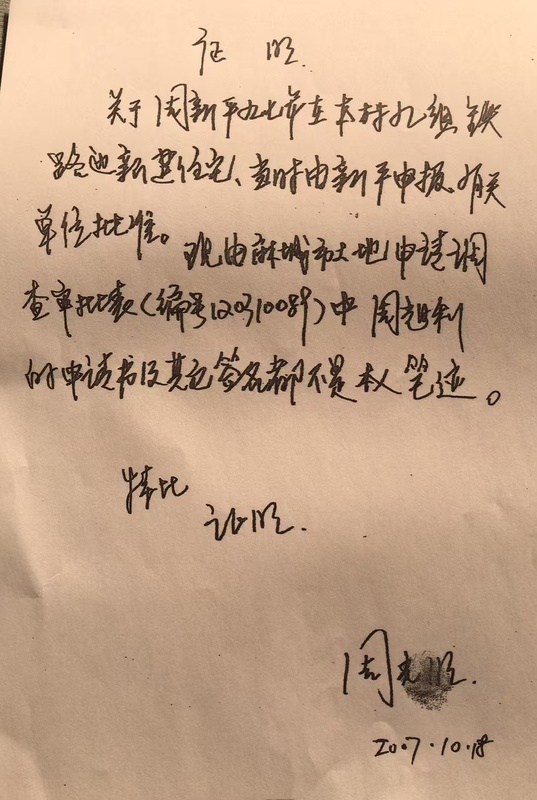 证 明
关于周新平九七年在本村九组铁
路边新建住宅、当时由新平申报,有关
单位批准。现由麻城市土地申请调
查审批表(编号12031008)中 周
的申请书及其它签名都不是本人笔迹。
特此
证明.
周光明.
2007.10.18